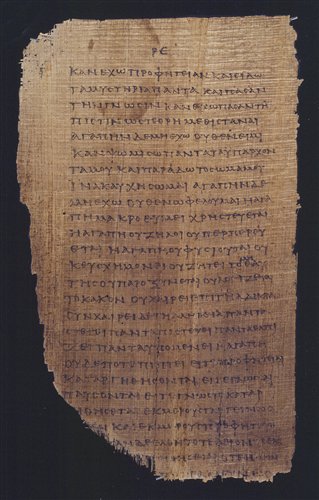 ΡΕ
ΚΑΝΕΧΩΠΡΟΦΗΤΕΙΑΝΚΑΙΕΙΔΩ
ΤΑΜΥϹΤΗΡΙΑΠΑΝΤΑΚΑΙΠΑϹΑΝ
ΤΗΝΓΝΩϹΙΝΚΑΝΕΧΩΠΑϹΑΝΤΗ
ΠΙϹΤΙΝΩϹΤΕΟΡΗΜΕΘΙϹΤΑΝΑΙ
ΑΓΑΠΗΝΔΕΜΗΕΧΩΟΥΘΕΝΕΙΜΙ
ΚΑΝΨΩΜΙϹΩΠΑΝΤΑΤΑΥΠΑΡΧΟΝ
ΤΑΜΟΥΚΑΙΠΑΡΑΔΩΤΟϹΩΜΑΜΟΥ
ΙΝΑΚΑΥΧΗϹΩΜΑΙΑΓΑΠΗΝΔΕ
ΜΗΕΧΩΟΥΘΕΝΩΦΕΛΟΥΜΑΙΗΑΓΑ
ΠΗΜΑΚΡΟΘΥΜΕΙΧΡΗϹΤΕΥΕΤΑΙ
ΗΑΓΑΠΗΟΥΖΗΛΟΙΟΥΠΕΡΠΕΡΕΥ
ΕΤΑΙΗΑΓΑΠΗΟΥΦΥϹΙΟΥΤΑΙΟΥ
ΚΕΥϹΧΗΜΟΝΕΙΟΥΖΗΤΕΙ
ΤΗϹΟΥΠΑΡΟΞΥΝΕΤΑΙΟΥΛΟΓΙΖΕΤΑΙ
ΤΟΚΑΚΟΝΟΥΧΑΙΡΕΙΕΠΙΤΗΑΔΙΚΙΑ
ϹΥΝΧΑΙΡΕΙΔΕΤΗΑΛΗΘΕΙΑΠΑΝΤΑ
ϹΤΕΓΕΙΠΑΝΤΑΠΙϹΤΕΥΕΙΠΑΝΤΑΕΛΠΙ
ΖΕΙΠΑΝΤΑΥΠΟΜΕΝΕΙΗΑΓΑΠΗ
ΟΥΔΕΠΟΤΕΠΙΠΤΕΙΕΙΤΕΠΡΟΦΗΤΕΙΑΙ
ΚΑΤΑΡΓΗΘΗϹΟΝΤΑΙΕΙΤΕΓΛΩϹϹΑΙ
ΠΑΥϹΟΝΤΑΙΕΙΤΕΓΝΩϹΙϹΚΑΤΑΡ
ΓΗΘΗϹΕΤΑΙΕΚΜΕΡΟΥϹΓΑΡΓΕΙΝΩϹ
ΚΑΙΕΚΜΕΡΟΥϹΠΡΟΦΗΤΕΥΟ
ΕΛΘΗΤΟΤΕΛΕΙΟΝΤΟΕΚ